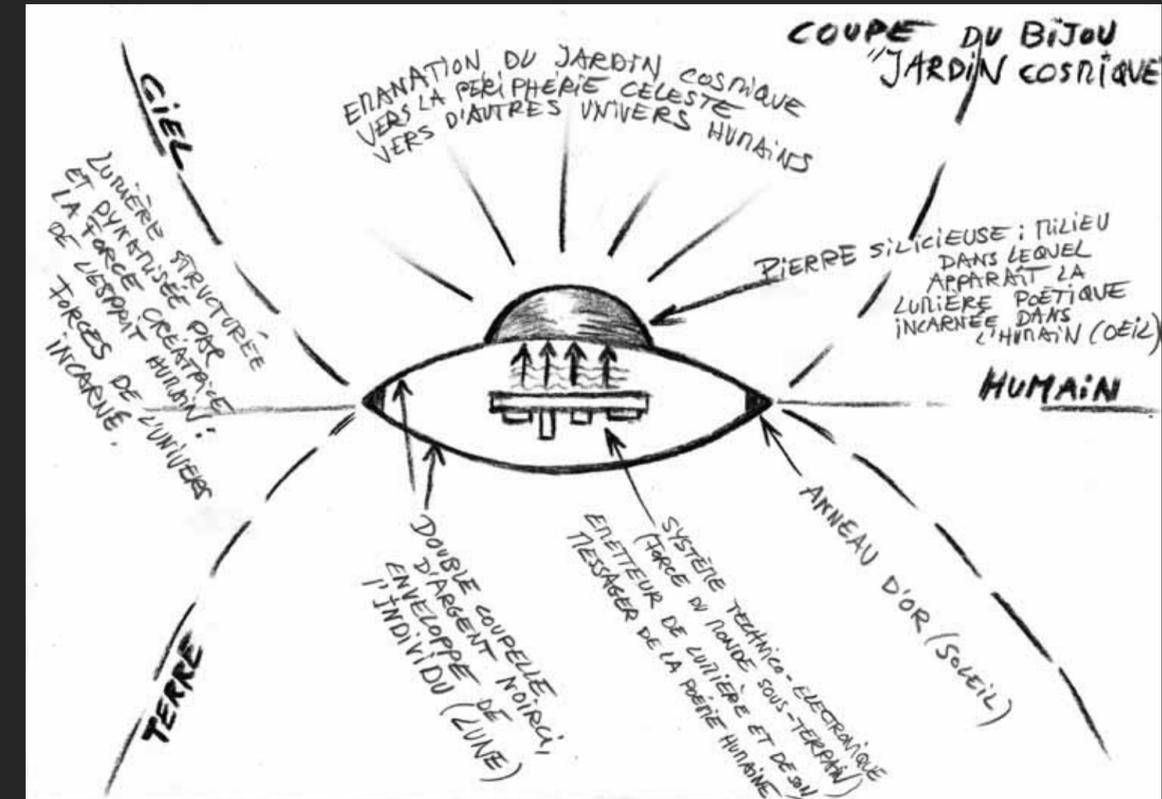 COUPE DU BIJOU
"JARDIN COSMIQUE
EMANATION DU JARDIN COSMIQUE
VERS LA PÉRIPHÉRIE CÉLESTE
VERS D'AUTRES UNIVERS HUMAINS
CIEL
LUMIÈRE STRUCTURÉE
ET DYNAMISÉE PAR
LA FORCE CRÉATRICE
DE L'ESPRIT HUMAIN:
FORCES DE L'UNIVERS
INCARNÉ.
PIERRE SILICIEUSE: MILIEU
DANS LEQUEL
APPARAÎT LA
LUMIÈRE POÉTIQUE
INCARNÉE DANS
L'HUMAIN (OEIL)
HUMAIN
TERRE
DOUBLE COUPELLE
D'ARGENT NOIRCI,
ENVELOPPE DE
L'INDIVIDU (LUNE)
SYSTÈME TECHNICO-ELECTRONIQUE
(FORCE DU MONDE SOUS-TERRAIN)
EMETTEUR DE LUMIÈRE ET DE SON
MESSAGER DE LA POÉSIE HUMAINE
ANNEAU D'OR (SOLEIL)